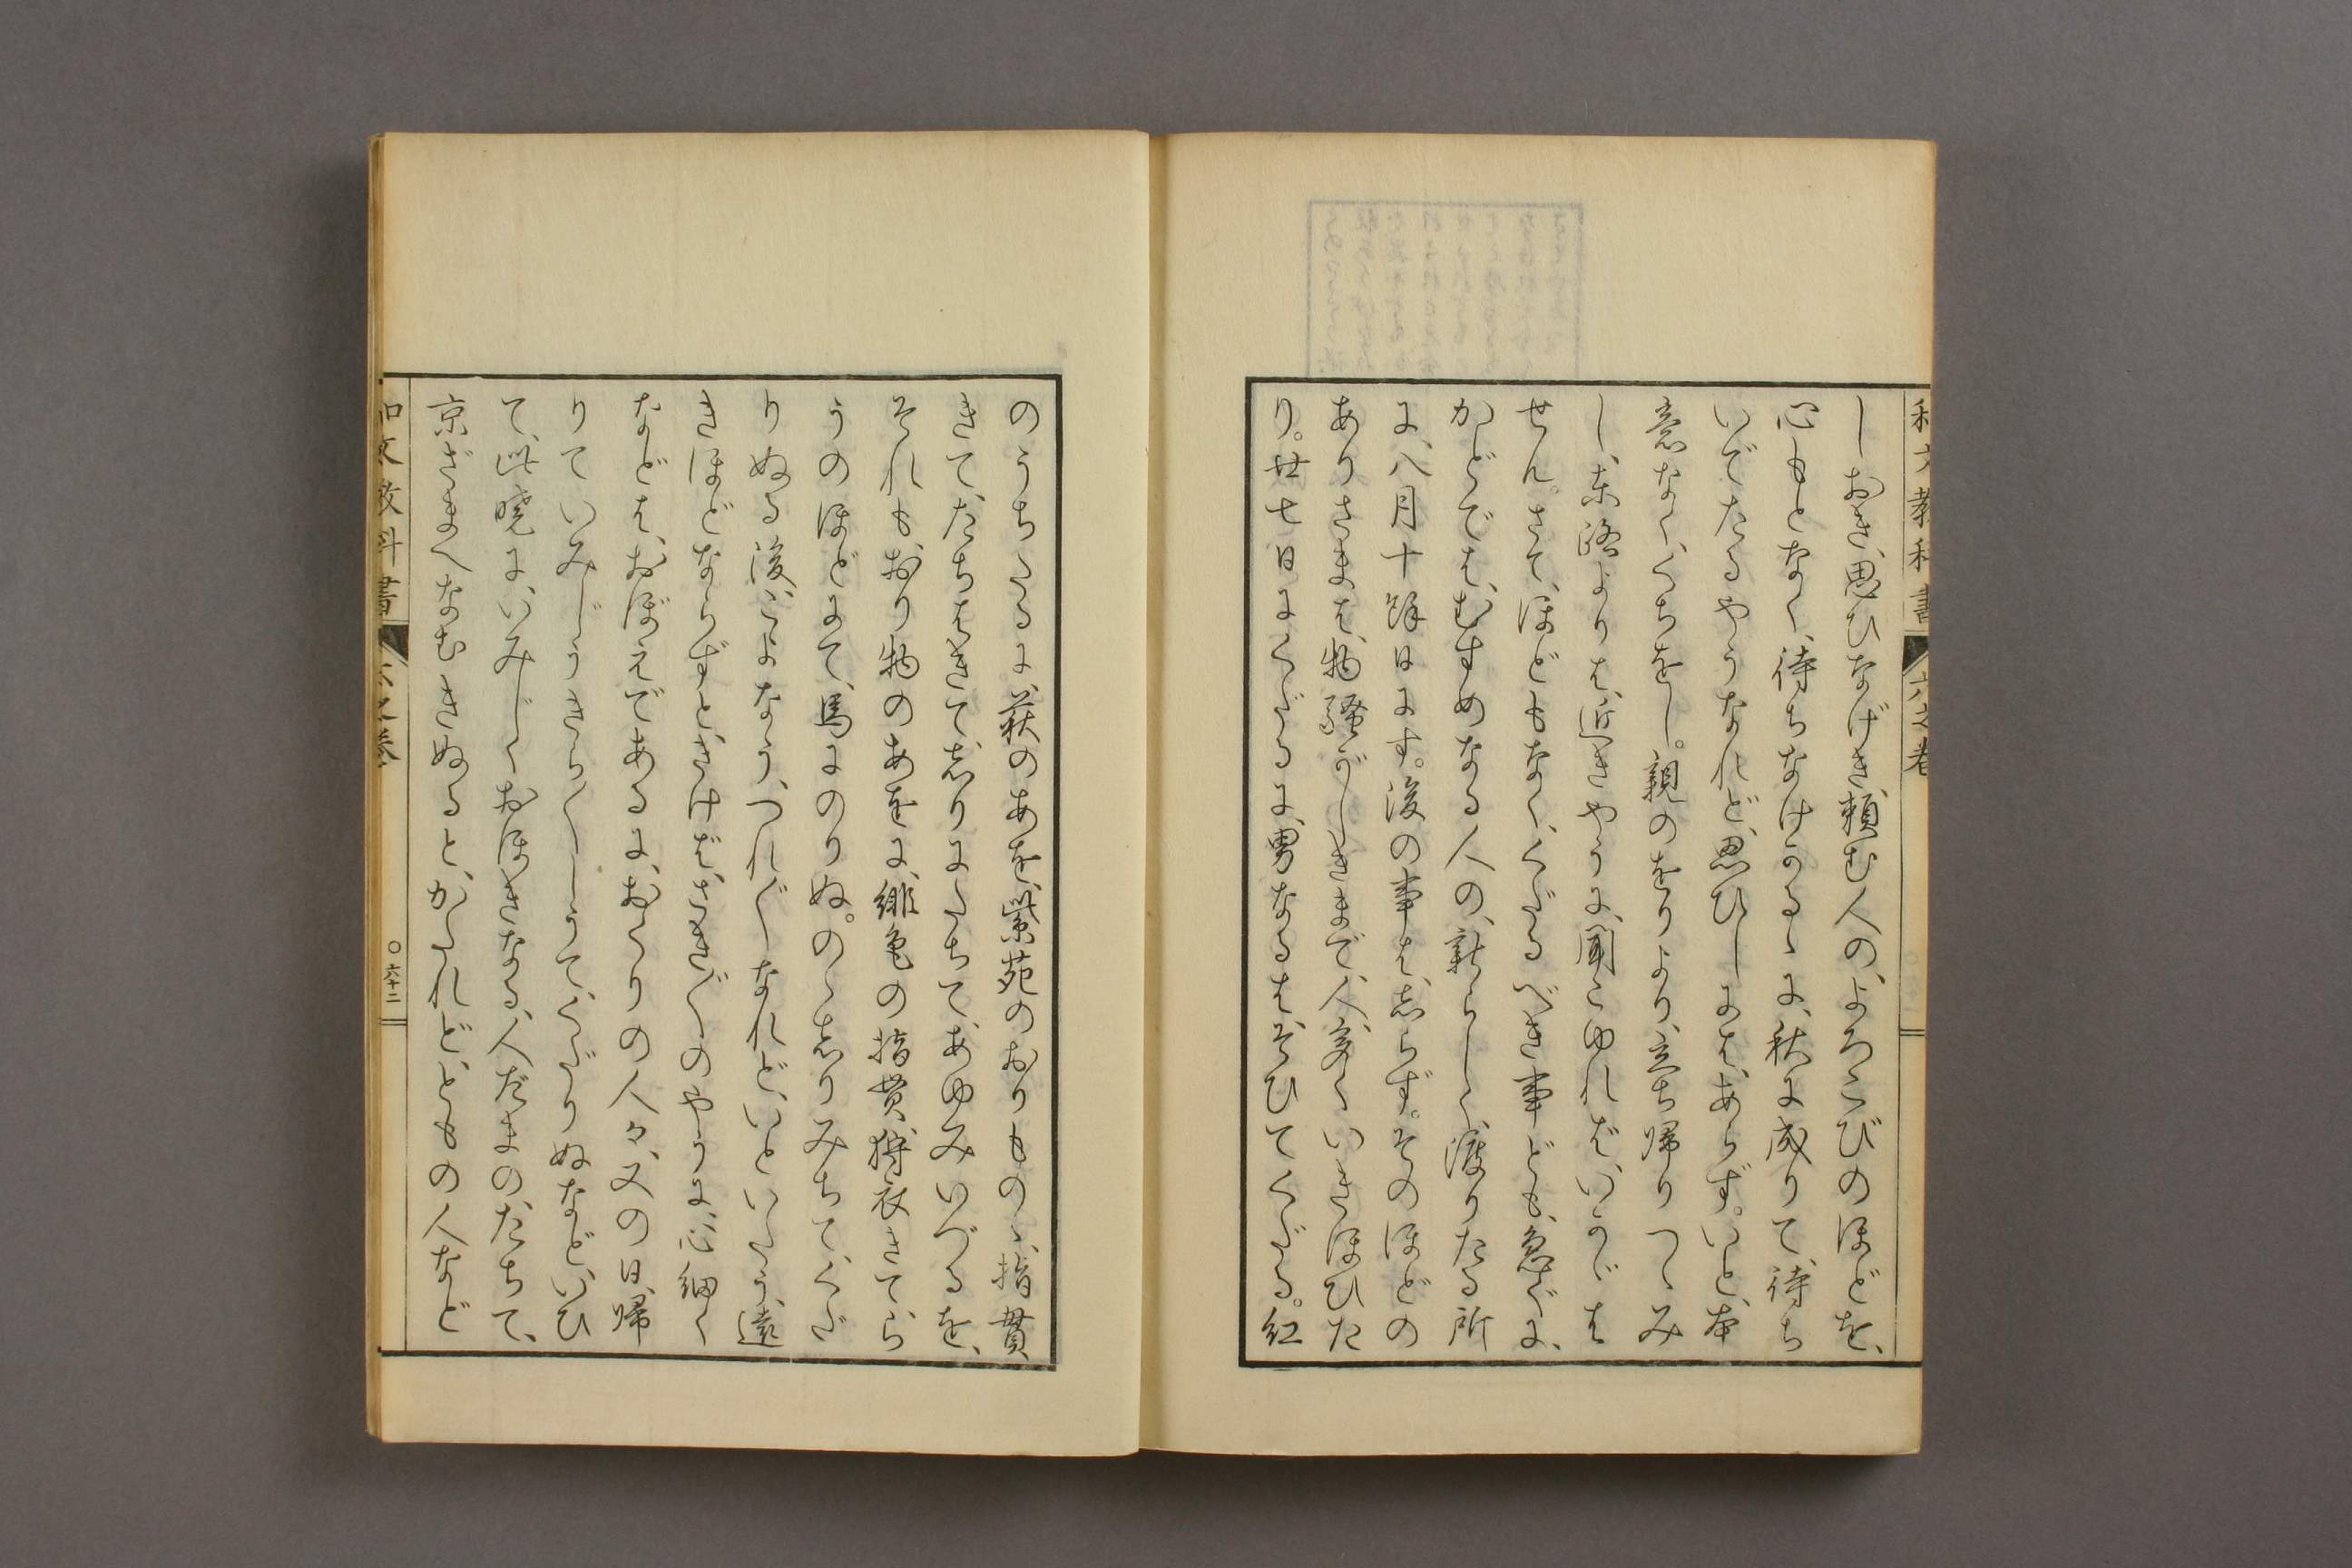 し、おき、思ひなげき、頼む人の、よろこびのほどを、
心もとなく、待ちなげかるゝに、秋に成りて、待ち
いでたるやうなれど、思ひしには、あらず。いと、本
意なく、くちをし。親のをりより、立ち帰りつゝみ
し、東路よりは、近きやうに、聞こゆれば、いかゞは
せん。さて、ほどもなく、くだるべき事ども、急ぐに、
かどでは、むすめなる人の、新らしく、渡りたる所
に、八月十餘日にす。後の事は、志らず。そのほどの
ありさまは、物騒がしきまで、人多く、いきほひた
り。廿七日にくだるに、男なるは、そひてくだる。紅
のうちたるに、萩のあを、紫苑のおりものゝ、指貫
きて、たちはきて、志りにたちて、あゆみいづるを、
それも、おり物のあをに、緋色の指貫、狩衣きて、ら
うのほどにて、馬にのりぬ。のゝ志りみちて、くだ
りぬる後、こよなう、つれ〴〵なれど、いといたう、遠
きほどならずと、きけば、さき〴〵のやうに、心細く
などは、おぼえであるに、おくりの人々、又の日、帰
りていみじうきら〳〵しうて、くだりぬなど、いひ
て、此暁に、いみじくおほきなる、人だまのたちて、
京ざまへなむきぬると、かたれど、ともの人など
和文教科書 六之巻
和文教科書 六之巻 〇六十二